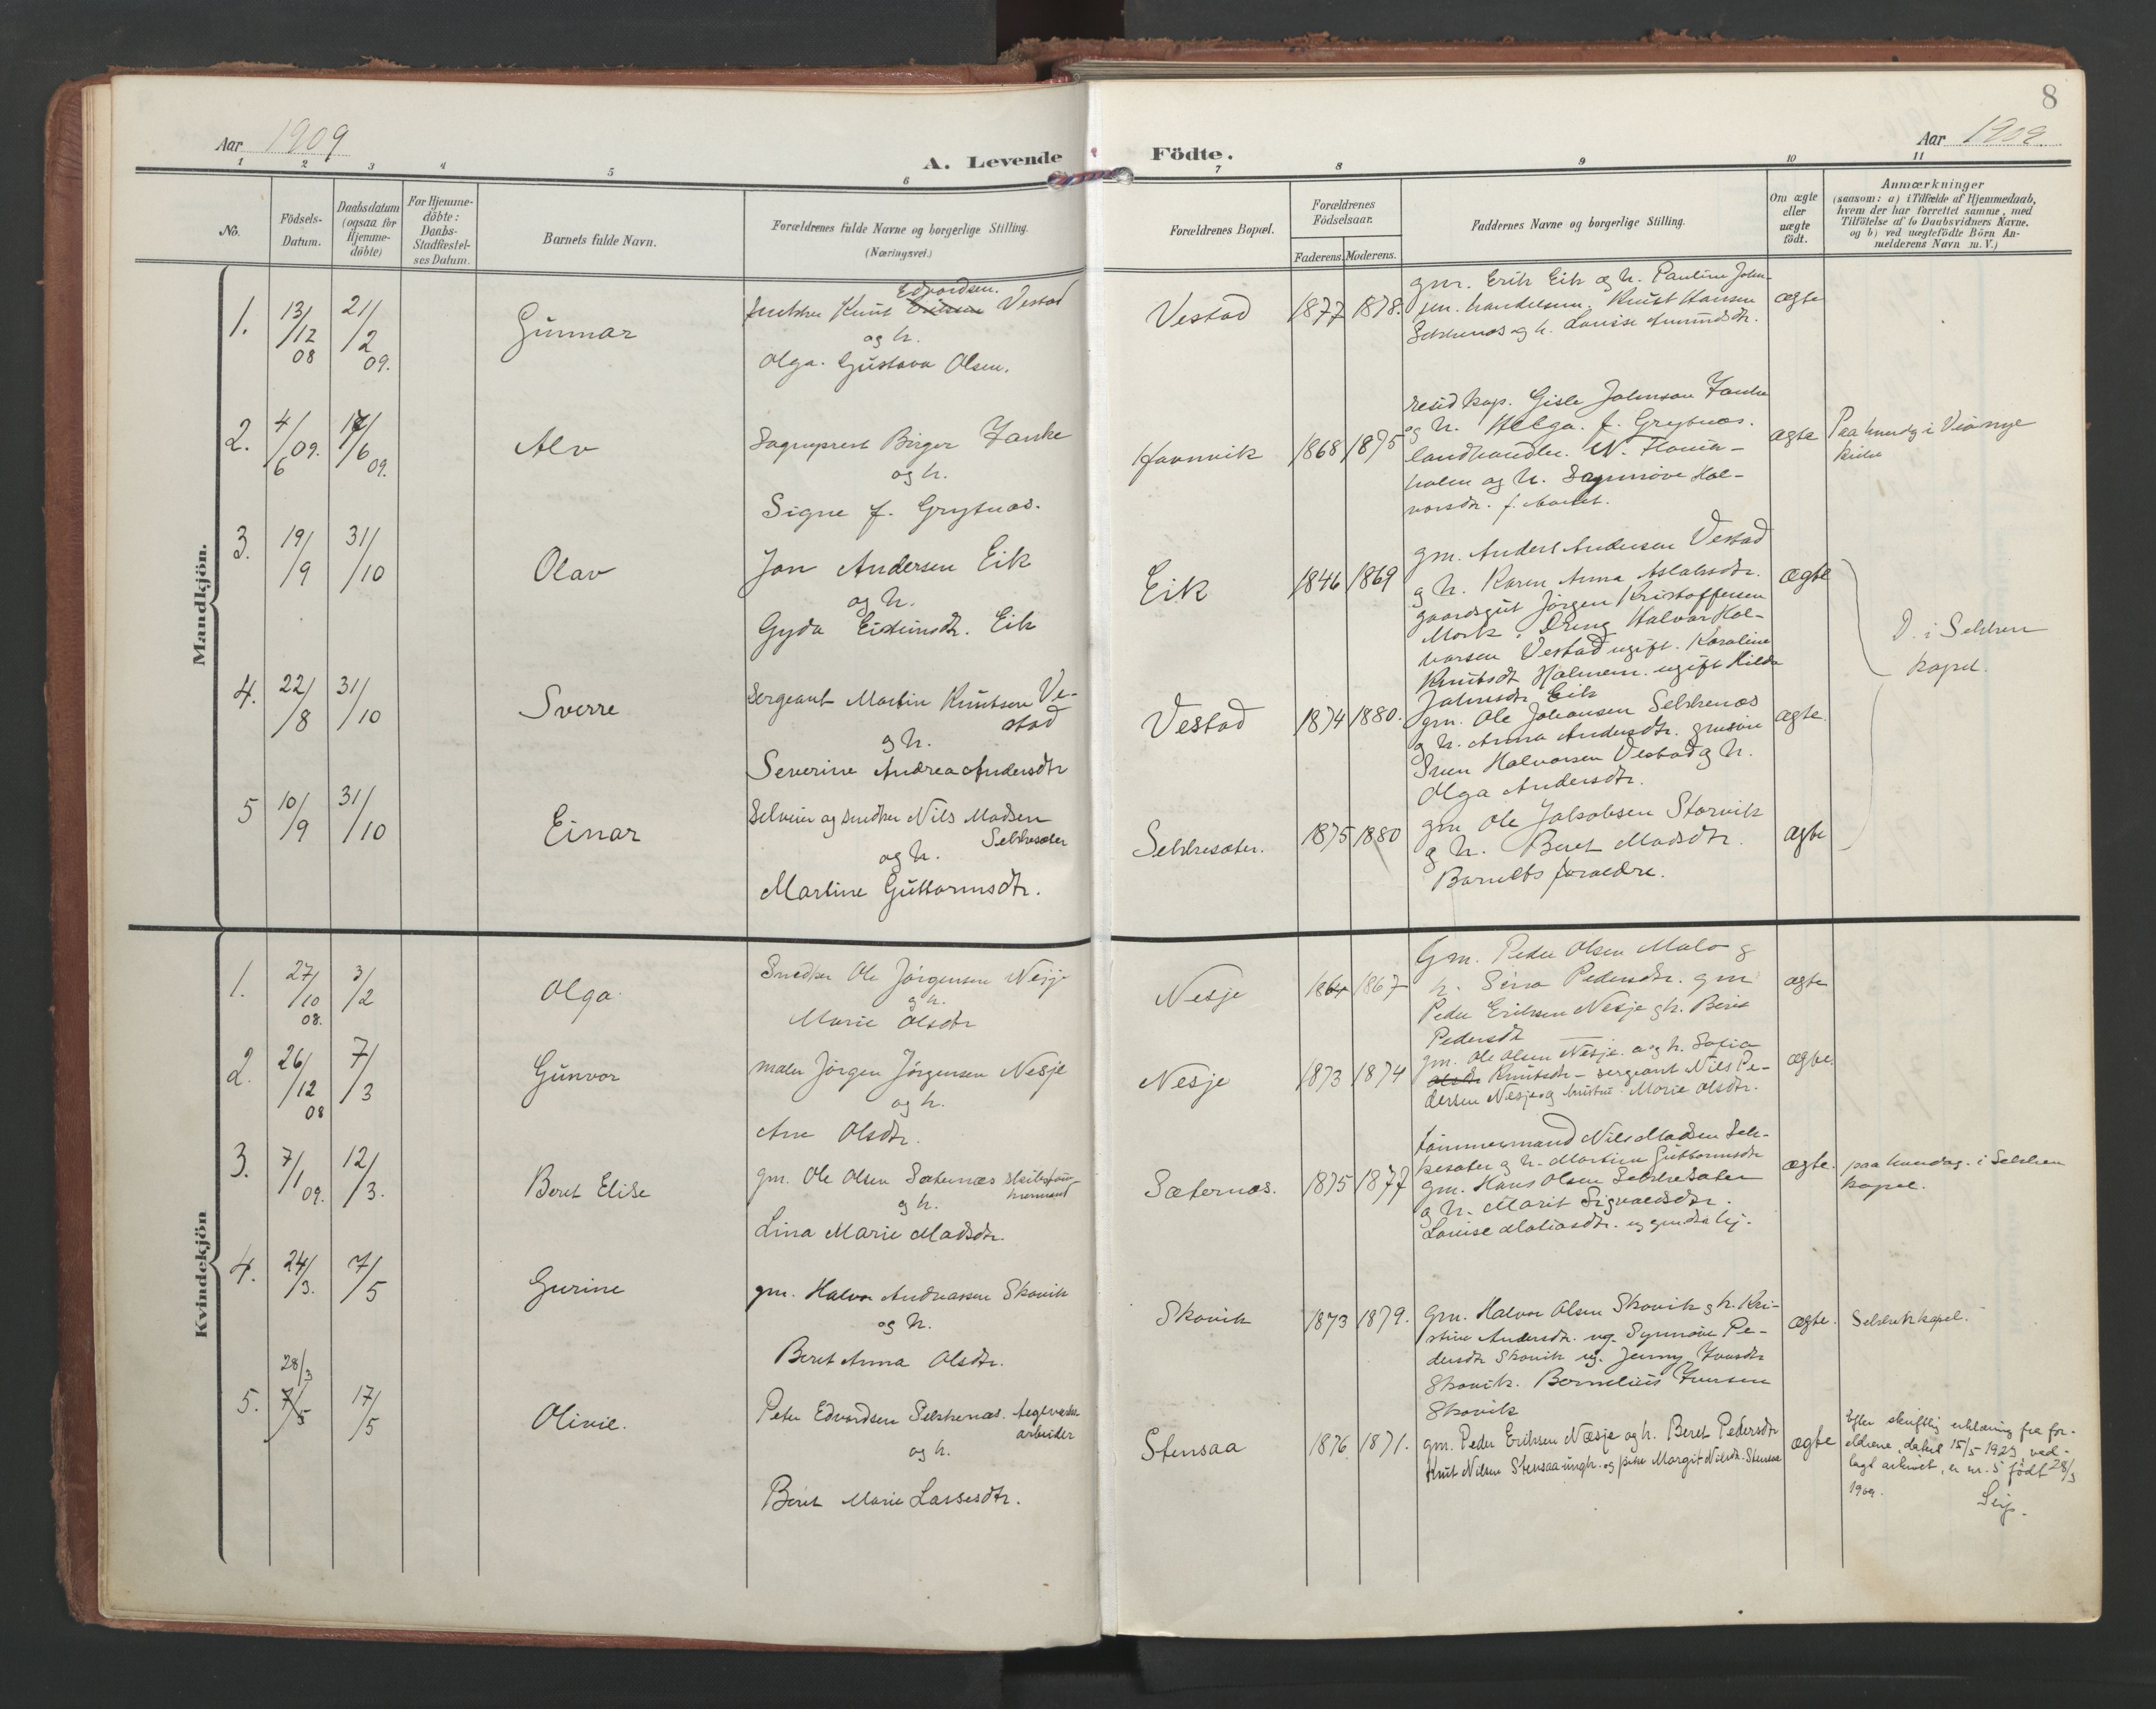 8
Aar 1909
A. Levende Födte.
Aar 1909.
1 2 3 4 5 6 7 8 9 10 11
No.
Födsels-
Datum.
Daabsdatum
(ogsaa for
Hjemme-
döbte)
For Hjemme-
döbte:
Daabs-
Stadfæstel-
ses Datum.
Barnets fulde Navn.
Forældrenes fulde Navne og borgerlige Stilling.
(Næringsvei.)
Forældrenes Bopæl.
Forældrenes
Födselsaar.
Faderens. Moderens.
Faddernes Navne og borgerlige Stilling.
Om ægte
eller
uægte
födt.
Anmærkninger
(saasom: a) i Tilfælde af Hjemmedaab,
hvem der har forrettet samme, med
Tilföielse af to Daabsvidners Navne.
og b) ved uægtefödte Börn An-
melderens Navn m. V.)
Mandkjön.
1.
13/12 08
21/2 09.
Gunnar
Edvardsen.
Knut Vestad
og h.
Olga Gustava Olsen.
Vestad
1877 1878.
gm. Erik Eik og h. Pauline John-
sen. handelsm. Knut Hansen
Sekkenæs og h. Lovise Amundsdtr.
ægte
2.
4/6 09.
/6 09.
Alv
Sogneprest Birger Janke
og h.
Signe f. Grytnæs.
Havnvik
1868 1875
resid kap. Gisle Johnson Janke
og h. Helga f. Grytnæs.
landhandler N.
holm og h. Synnöve Hal-
vorsdr. f.
ægte
Paa hverdg i Veönye
kirke
3.
19/9
31/10
Olav
Jon Andersen Eik
og h.
Gyda Eik
Eik
1846 1869
gm. Anders Andersen Vestad
og h. Karen Anna Aslaksdtr.
gaardsgut Jörgen Kristoffersen
Mork. Dreng Halvor Hal-
vorsen Vestad ugift. Karoline
Knutsdt Holmem. ugift Hilda
Johnsdr Eik
ægte
D. i Sekken
kapel.
4.
22/8
31/10
Sverre
Sergeant Martin Knutsen Ve-
stad
og h.
Severine Andrea Andersdtr
Vestad
1874 1880.
gm. Ole Johansen Sekkenæs
og h. Anna Andersdtr. gmsön
Sven Halvorsen Vestad og h.
Olga Andersdtr.
ægte.
5
10/9
31/10
Einar
Selveier og snedker Nils Madsen
Sekkesæter
og h.
Martine Guttormsdtr.
Sekkesæter.
1875 1880
gm Ole Jakobsen Storvik
og h. Beret Madsdtr.
Barnets foreldre.
ægte
Kvindekjön
1.
27/10 08.
3/2
Olga
Snedker Ole Jörgensen Nesje
og h.
Marie Olsdtr
Nesje
1864 1867
Gm. Peder Olsen Malo og
h. Sina Pedersdtr. gm
Peder Eriksen Nesje og h. Beret
Pedersdt
ægte
2.
26/12 08
7/3
Gunvor
maler Jörgen Jörgensen Nesje
og h.
Ane Olsdtr.
Nesje
1873 1874
gm. Ole Olsen Nesje og h. Sofia
Olsdtr Knutsdtr - sergeant Nils Pe-
dersen Nesje og hustru Marie Olsdtr.
ægte.
3.
7/1 09.
12/3.
Beret Elise
gm. Ole Olsen Sæternæs skibstöm-
mermand
og h.
Lina Marie Madsdtr.
Sæternæs.
1875 1877
tömmermand Nils Madsen Sek-
kesæter og h. Martine Guttormsdtr
gm. Hans Olsen Sekkesæter
og h. Marit Sigvaldsdtr.
Louise Matiasdtr.
ægte.
paa hverdag. i Sekken
kapel.
4.
24/3.
7/5
Gurine
gm. Halvor Andreassen Skovik
og h.
Beret Anna Olsdtr.
Skovik
1873 1879.
Gm. Halvor Olsen Skovik og h. Kri-
stine Andersdtr. ug. Synnöve Pe-
dersdtr Skovik ug. Jenny Iversdtr
Skovik. Bornelius Iversen
Skovik
ægte.
Sekken kapel.
5.
28/3
7/5
17/5
Olivie.
Peter Edvardsen Sekkenæs. teglverks-
arbeider
og h.
Beret Marie Lassesdtr.
Stensaa
1876. 1871.
gm. Peder Eriksen Næsje og h. Beret Pedersdtr
Knut Nilsen Stensaa ungk. og pike Margit Nilsdtr. Stensaa
ægte
Efter skriftlig erklæring fra for-
eldrene, datert 15/5 1923, ved-
lagt arkivet, er nr. 5 födt 28/3
1909.